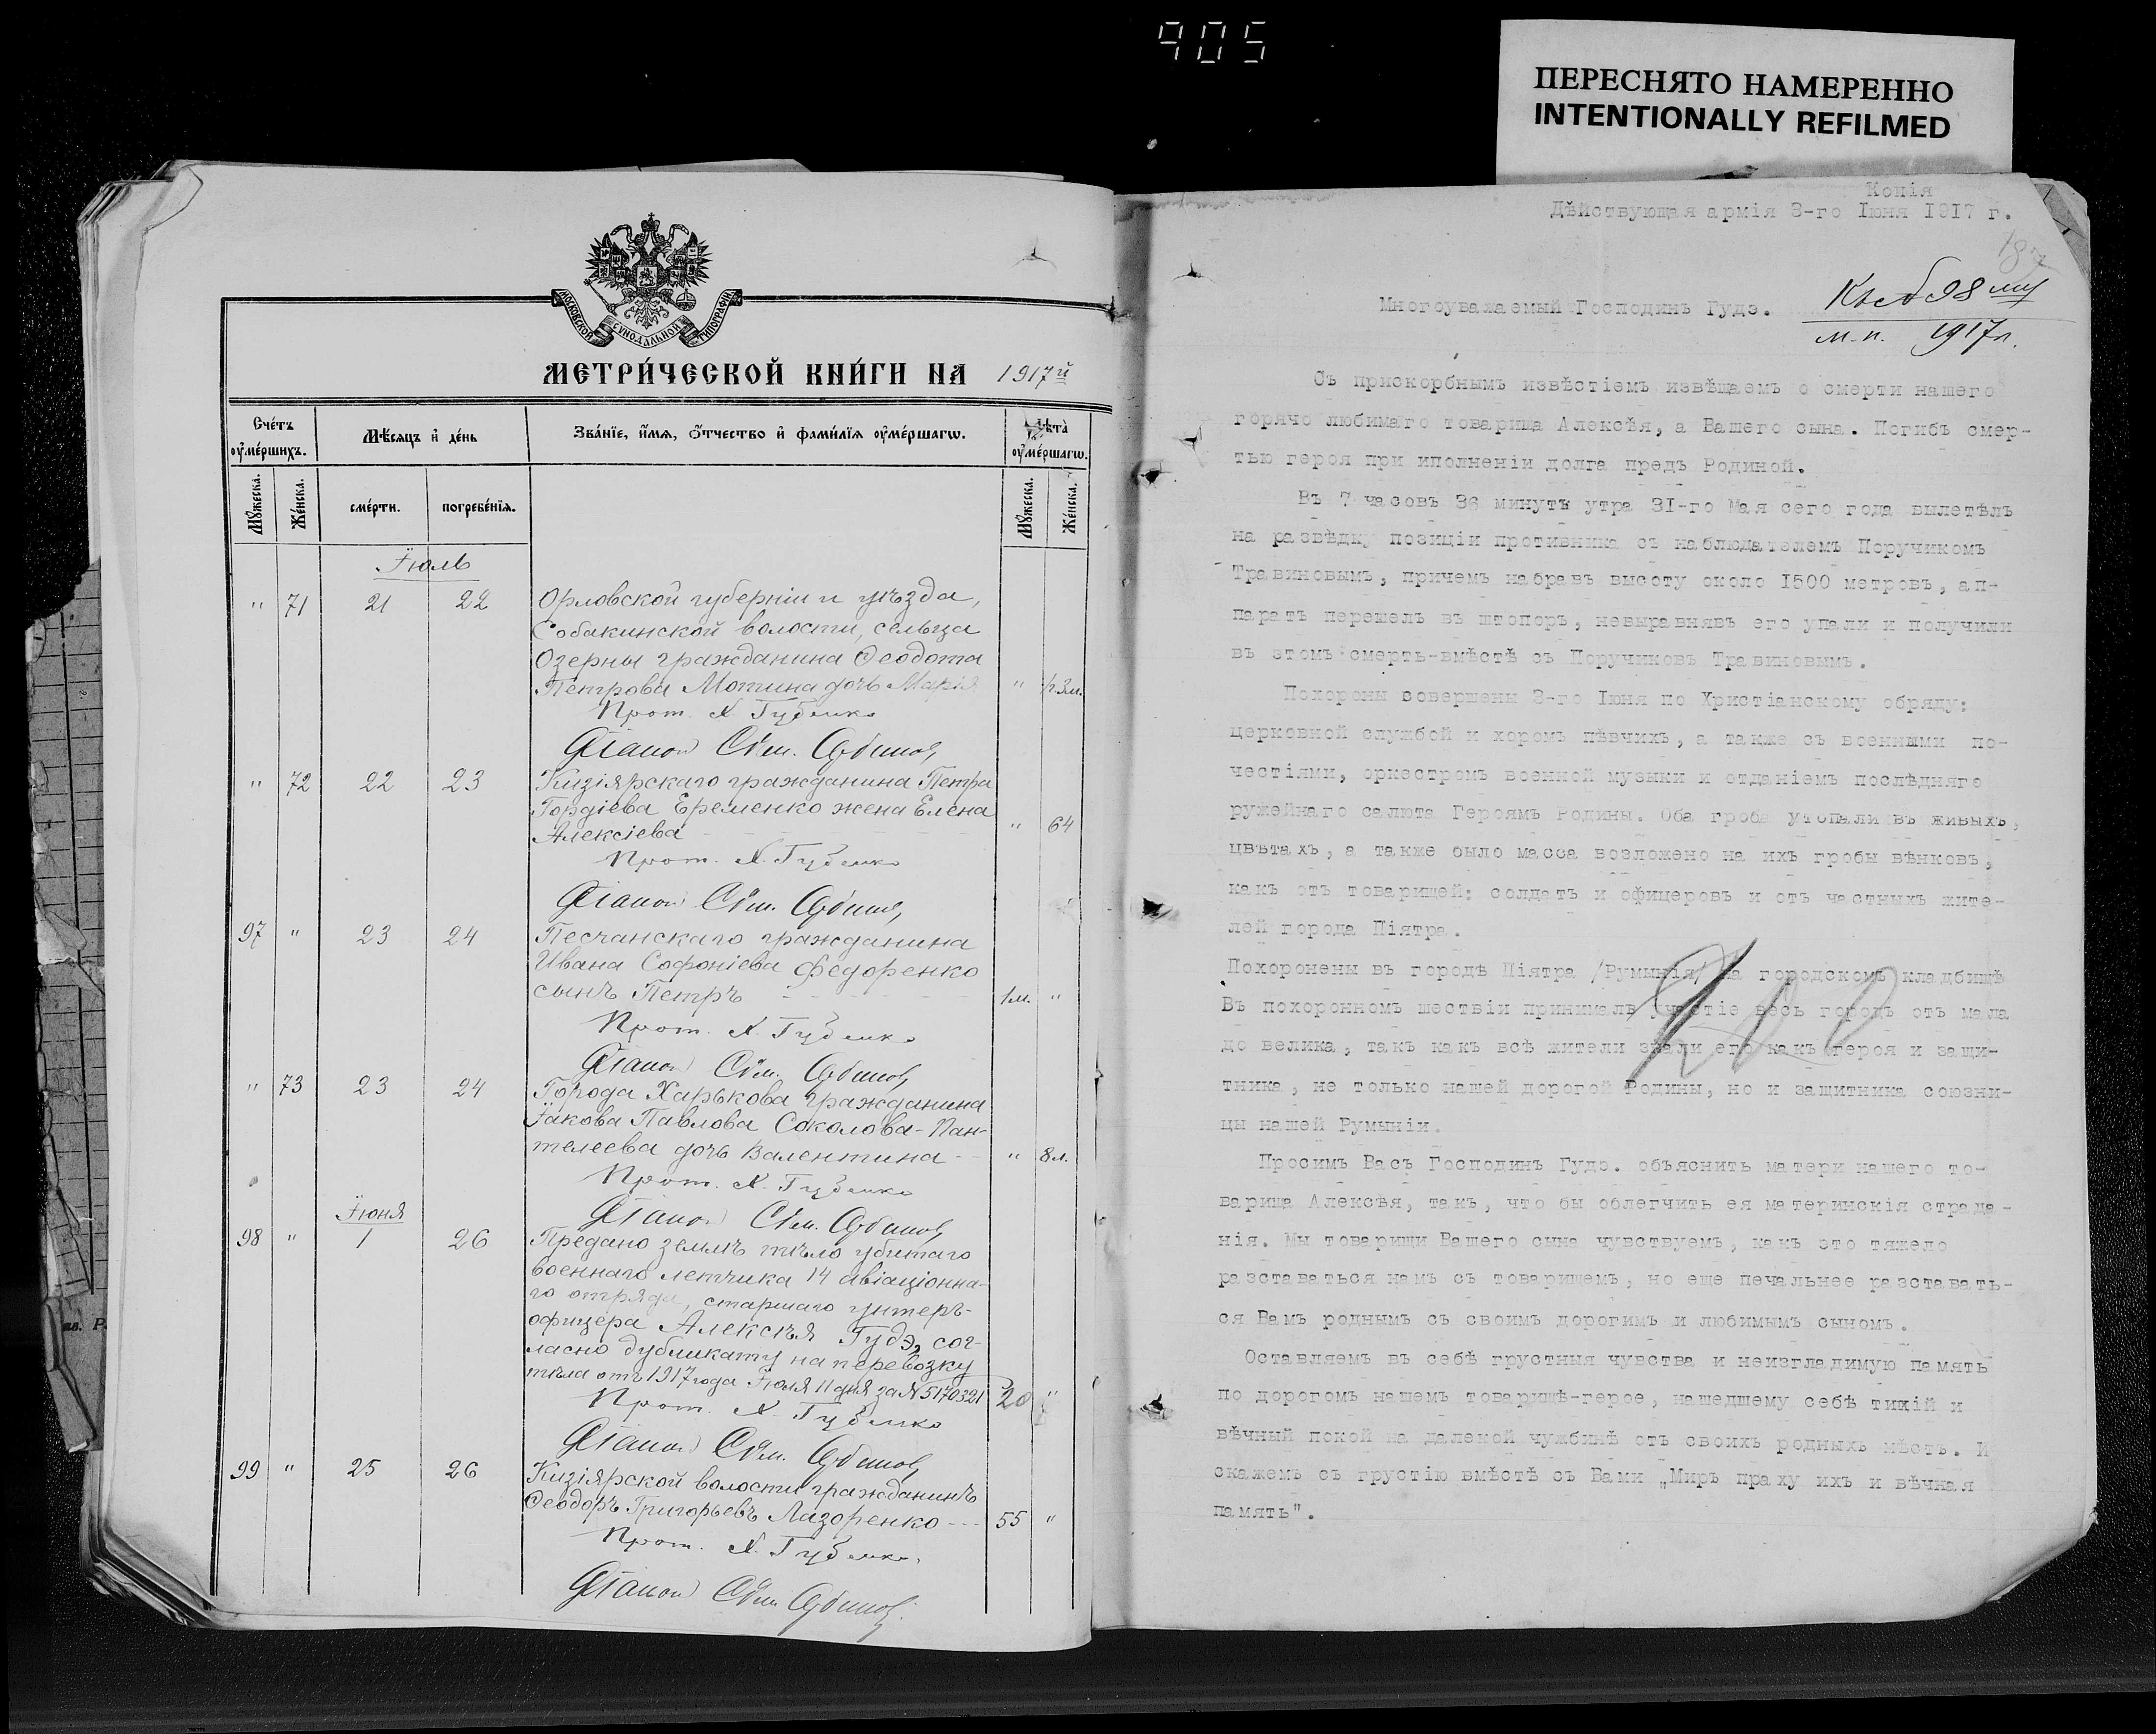 905
ПЕРЕСНЯТО НАМЕРЕННО
INTENTIONALLY REFILMED
МОСКОВСКОЙ СУНОДАЛЬНОЙ ТИПОГРАФІИ
МЕТРИ́ЧЕСКОЙ КНИ́ГИ НА 1917й
Сче́тъ ᲂу҆ме́ршихъ.
Мѣ́сяцъ и҆ де́нь
Зва́нїе, и҆́мѧ, ѻ҆́тчество и҆ фами́лїѧ ᲂу҆ме́ршагѡ.
Лѣ́та ᲂу҆ме́ршагѡ.
Мꙋ́жеска.
Же́нска.
сме́рти.
погребе́нїѧ.
Мꙋ́жеска.
Же́нска.
Іюль
" 71 21 22 Орловской губерніи и уѣзда,
Собакинской волости, сельца
Озерны гражданина Ѳеодота
Петрова Мотина дочь Марія " 3м.
Прот. Х. Губенко
Діакон Сѵм.
" 72 22 23 Кизіярскаго гражданина Петра
Гордіева Еременко жена Елена
Алексіева " 64
Прот. Х. Губенко
Діакон Сѵм.
97 " 23 24 Песчанскаго гражданина
Ивана Софоніева Федоренко
сынъ Петръ 1м. "
Прот. Х. Губенко
Діакон Сѵм.
" 73 23 24 Города Харькова гражданина
Іакова Павлова Соколова-Пан-
телеева дочь Валентина - - " 8л.
Прот. Х. Губенко
Діакон Сѵм.
Іюня
98 " 1 26 Предано землѣ тѣло убитаго
военнаго летчика 14 авіаціонна-
го отряда, старшаго унтеръ-
офицера Алексѣя Гудэ, сог-
ласно дубликату на перевозку
тѣла отъ 1917 года Іюля 11 дня за № 5170321 20 "
Прот. Х. Губенко
Діакон Сѵм.
99 " 25 26 Кизіярской волости гражданинъ
Ѳеодоръ Григорьевъ Лизоренко - - - 55 "
Прот. Х. Губенко.
Діакон Сѵм.
Копія
Дѣйствующая армія 3-го Іюня 1917 г.
Къ № 98му
м.п. 1917г.
Многоуважаемый Господинъ Гудэ.
Съ прискорбнымъ извѣстіемъ извѣщаемъ о смерти нашего
горячо любимаго товарища Алексѣя, а Вашего сына. Погибъ смер-
тью героя при иполненіи долга предъ Родиной.
Въ 7 часовъ 36 минутъ утра 31-го Мая сего года вылетѣлъ
на развѣдку позиціи противника съ наблюдателемъ Поручикомъ
Травиновымъ, причемъ набравъ высоту около 1500 метровъ, ап-
паратъ перешелъ въ штопоръ, невыравнявъ его упали и получили
въ этомъ смерть-вмѣстѣ съ Поручиковъ Травиновымъ.
Похороны совершены 3-го Іюня по Христіанскому обряду:
церковной службой и хоромъ пѣвчихъ, а также съ военными по-
честіями, оркестромъ военной музыки и отданіемъ послѣдняго
ружейнаго салюта Героямъ Родины. Оба гроба утопали въ живыхъ,
цвѣтахъ, а также было масса возложено на ихъ гробы вѣнковъ,
какъ отъ товарищей: солдатъ и офицеровъ и отъ частныхъ жите-
лей города Піятра.
Похоронены въ городѣ Піятра /Румынія/ на городскомъ кладбищѣ
Въ похоронномъ шествіи принималъ участіе весь городъ отъ мала
до велика, такъ какъ всѣ жители знали его какъ героя и защи-
тника, не только нашей дорогой Родины, но и защитника союзни-
цы нашей Румыніи.
Просимъ Васъ Господинъ Гудэ. объяснить матери нашего то-
варища Алексѣя, такъ, что бы облегчить ея материнскія страда-
нія. Мы товарищи Вашего сына чувствуемъ, какъ это тяжело
разставаться намъ съ товарищемъ, но еше печальнее разставать-
ся Вамъ роднымъ съ своимъ дорогимъ и любимымъ сыномъ.
Оставляемъ въ себѣ грустныя чувства и неизгладимую память
по дорогомъ нашемъ товарищѣ-герое, нашедшему себѣ тихій и
вѣчный покой на далекой чужбинѣ отъ своихъ родныхъ мѣстъ. И
скажемъ съ грустію вмѣстѣ съ Вами „Миръ праху ихъ и вѣчная
память".